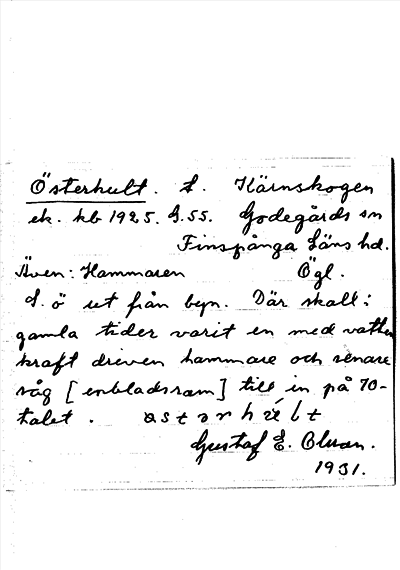 Österhult. t. Kärnskogen
ek. kb 1925. G.55. Godegårds sn
Finspånga Läns hd.
Även: Hammaren Ögl.
S. ö ut från byn. Där skall i
gamla tider varit en med vatten
kraft dreven hammare och senare
såg [enbladsram] till in på 70-
talet. əstərhúlt
Gustaf E. Olsson.
1931.